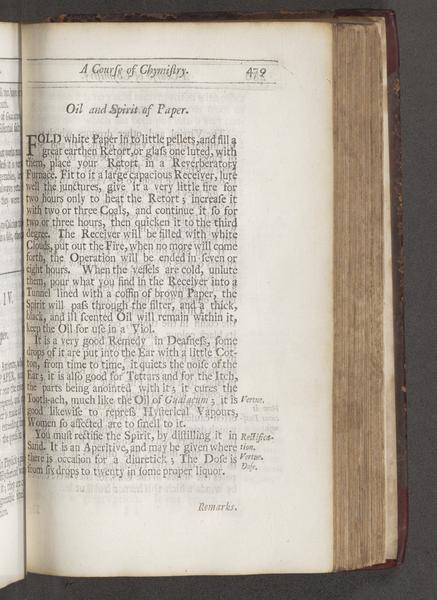 A Course of Chymistry. 479
Oil and Spirit of Paper.
FOLD white Paper in to little pellets, and fill a
great earthen Retort, or glass one luted, with
them, place your Retort in a Reverberatory
Furnace. Fit to it a large capacious Receiver, lute
well the junctures, give it a very little fire for
two hours only to heat the Retort; increase it
with two or three Coals, and continue it so for
two or three hours, then quicken it to the third
degree. The Receiver will be filled with white
Clouds, put out the Fire, when no more will come
forth, the Operation will be ended in seven or
eight hours. When the vessels are cold, unlute
them, pour what you find in the Receiver into a
Tunnel lined with a coffin of brown Paper, the
Spirit will pass through the filter, and a thick,
black, and ill scented Oil will remain within it,
keep the Oil for use in a Viol.
It is a very good Remedy in Deafness, some
drops of it are put into the Ear with a little Cot-
ton, from time to time, it quiets the noise of the
Ear; it is also good for Tettars and for the Itch,
the parts being anointed with it; it cures the
Tooth-ach, much like the Oil of Guaiacum; it is Vertue.
good likewise to repress Hysterical Vapours,
Women so affected are to smell to it.
You must rectifie the Spirit, by distilling it in Rectifica-
Sand. It is an Aperitive, and may be given where tion.
there is occasion for a diuretick; The Dose is Vertue.
from six drops to twenty in some proper liquor. Dose.
Remarks.